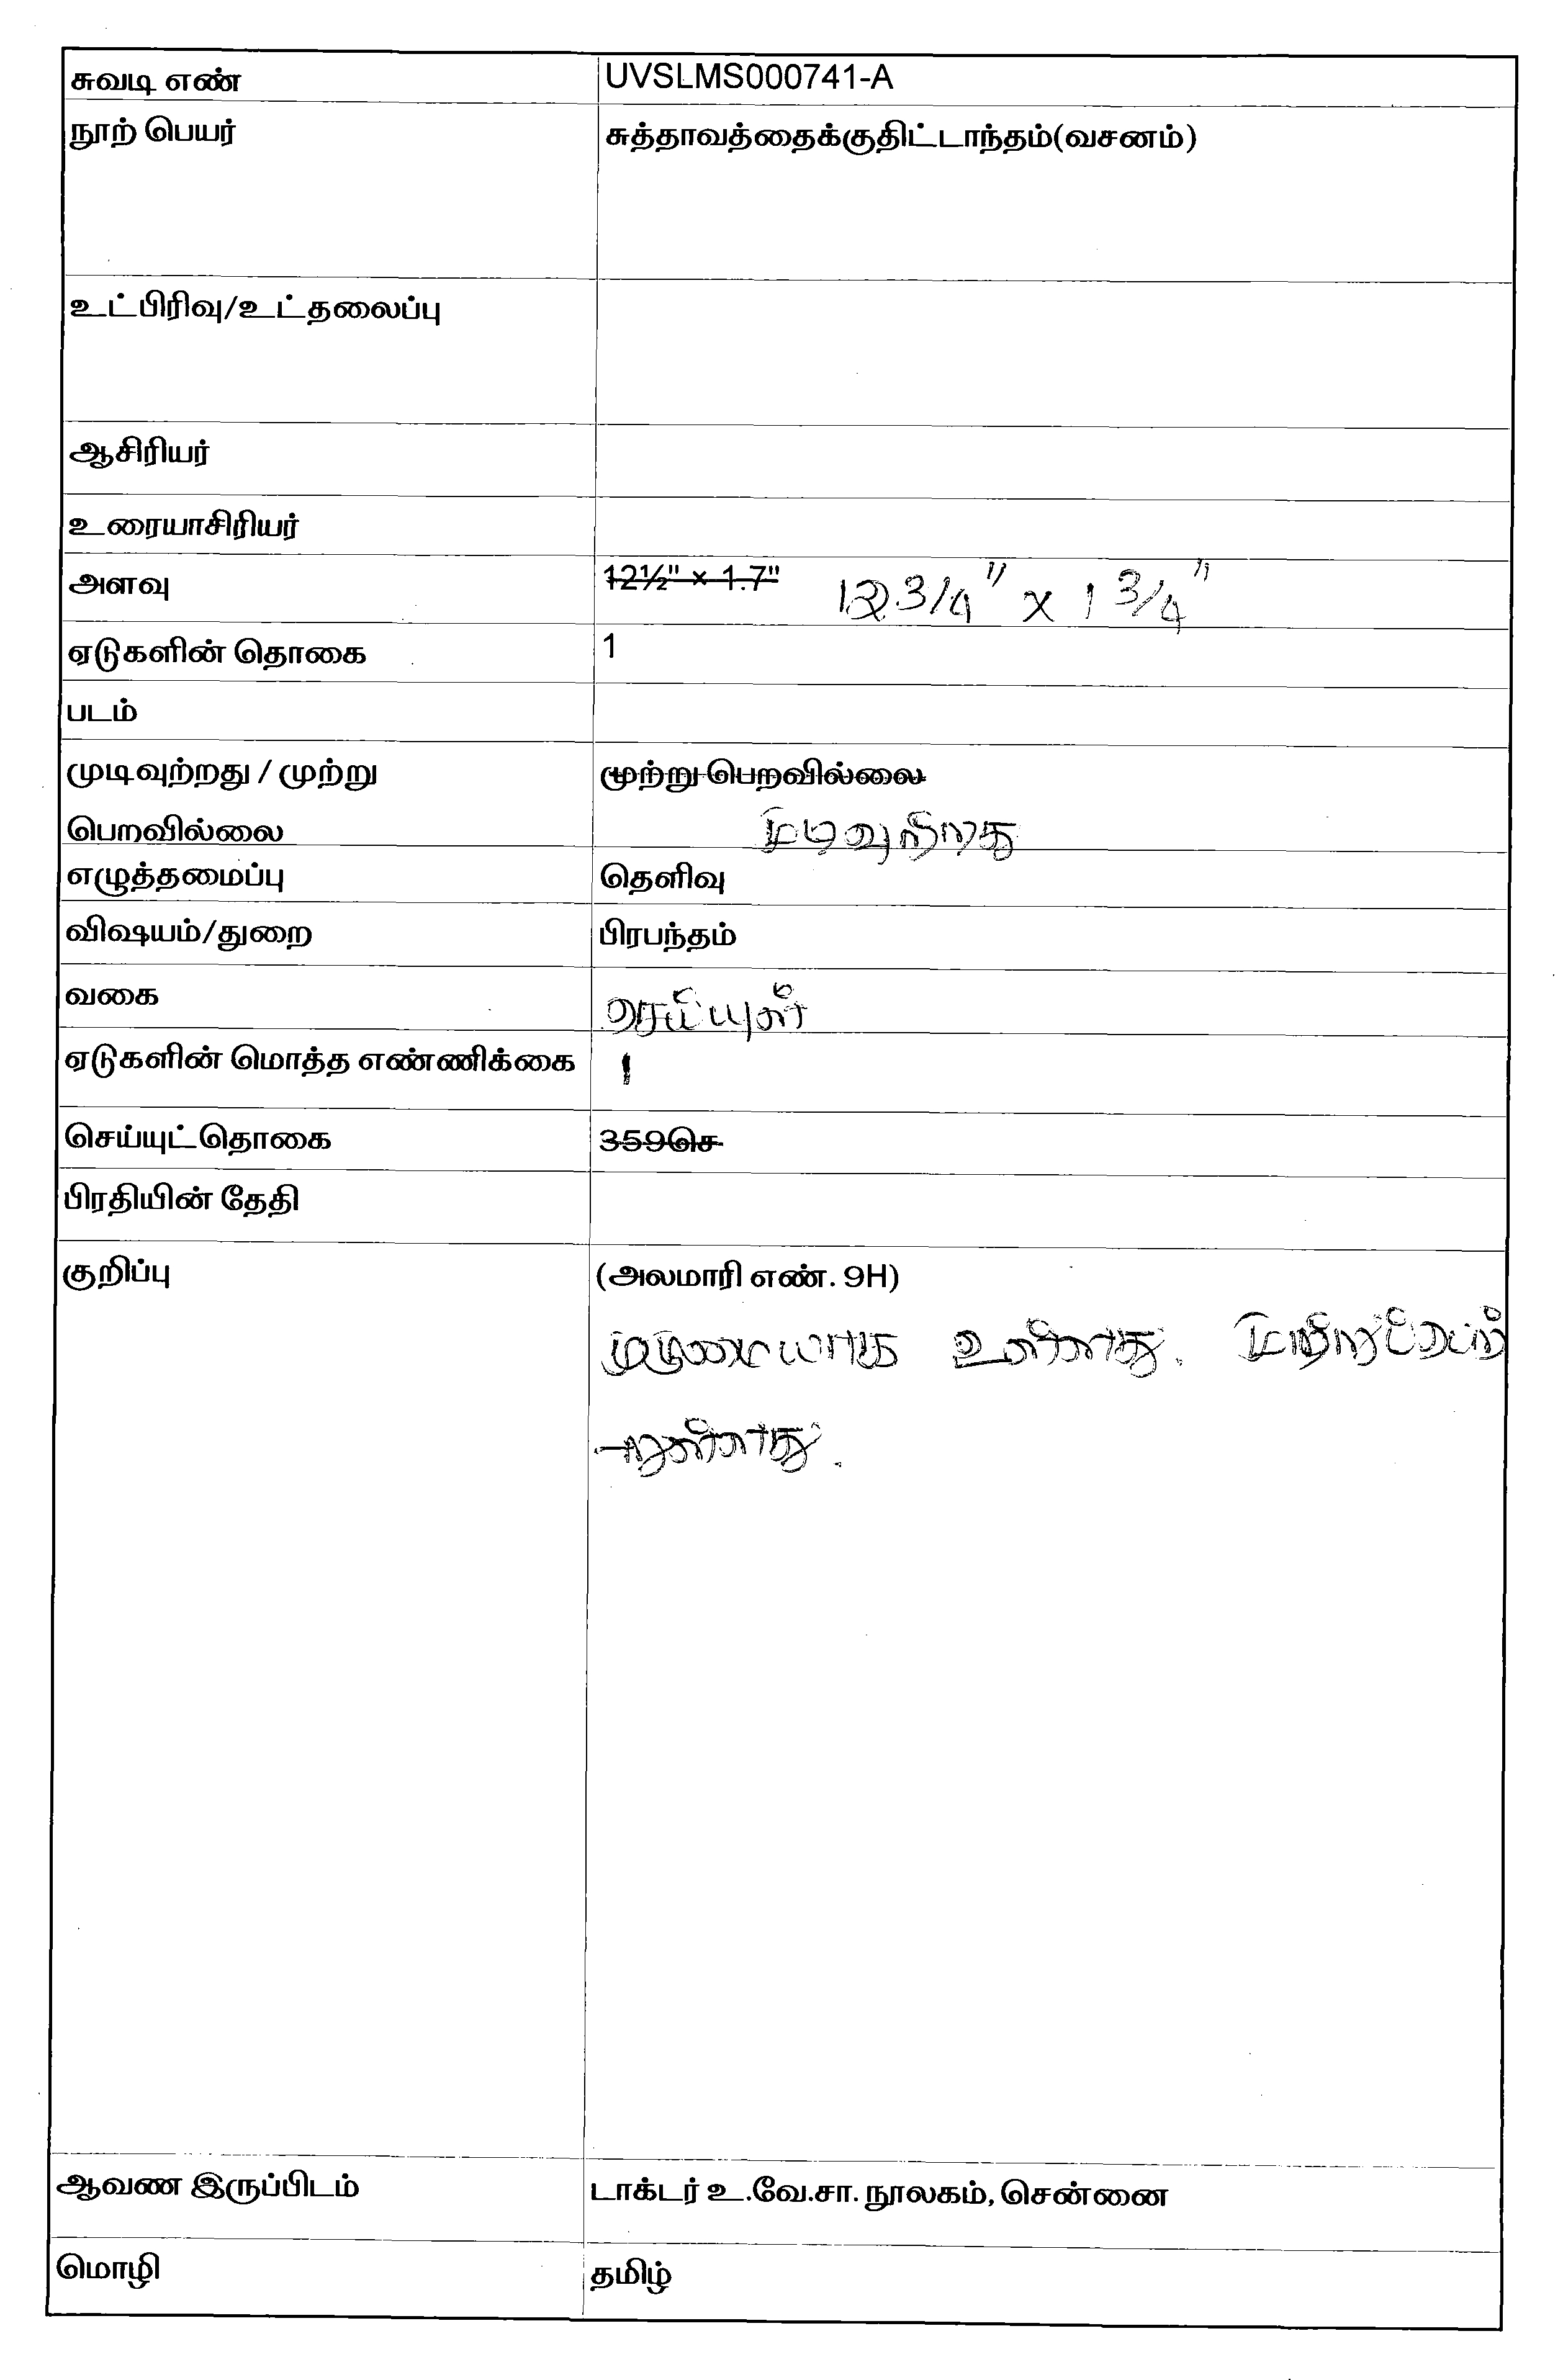 சுவடி எண் UVSLMS000741-A
நூற் பெயர் சுத்தாவத்தைக்குதிட்டாந்தம்(வசனம்)
உட்பிரிவு/உட்தலைப்பு
ஆசிரியர்
உரையாசிரியர்
அளவு 12½" × 1.7" 12 3/4" x 1 3/4"
ஏடுகளின் தொகை 1
படம்
முடிவுற்றது / முற்று முற்று பெறவில்லை
பெறவில்லை
எழுத்தமைப்பு தெளிவு
விஷயம்/துறை பிரபந்தம்
வகை செய்யுள்
ஏடுகளின் மொத்த எண்ணிக்கை 1
செய்யுட்தொகை 359செ
பிரதியின் தேதி
குறிப்பு (அலமாரி எண். 9H)
முழுமையாக உள்ளது.
ஆவண இருப்பிடம் டாக்டர் உ.வே.சா. நூலகம், சென்னை
மொழி தமிழ்